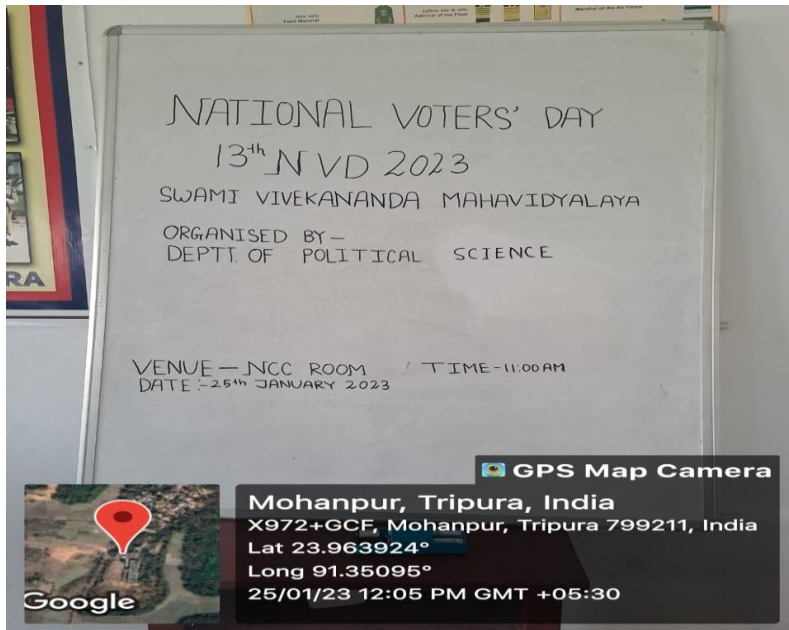 Field Marshal
Admiral of the Fleet
Marshal of the Air Force
NATIONAL VOTERS' DAY
13th NVD 2023
SWAMI VIVEKANANDA MAHAVIDYALAYA
ORGANISED BY—
DEPTT. OF POLITICAL SCIENCE
RA
VENUE — NCC ROOM / TIME - 11:00 AM
DATE :- 25th JANUARY 2023
GPS Map Camera
Mohanpur, Tripura, India
X972+GCF, Mohanpur, Tripura 799211, India
Lat 23.963924°
Long 91.35095°
25/01/23 12:05 PM GMT +05:30
Google